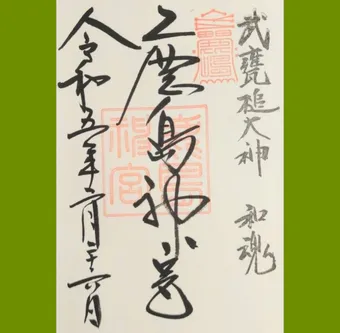 武甕槌大神 和魂
鹿島神宮
鹿島神宮
令和五年二月二十六日